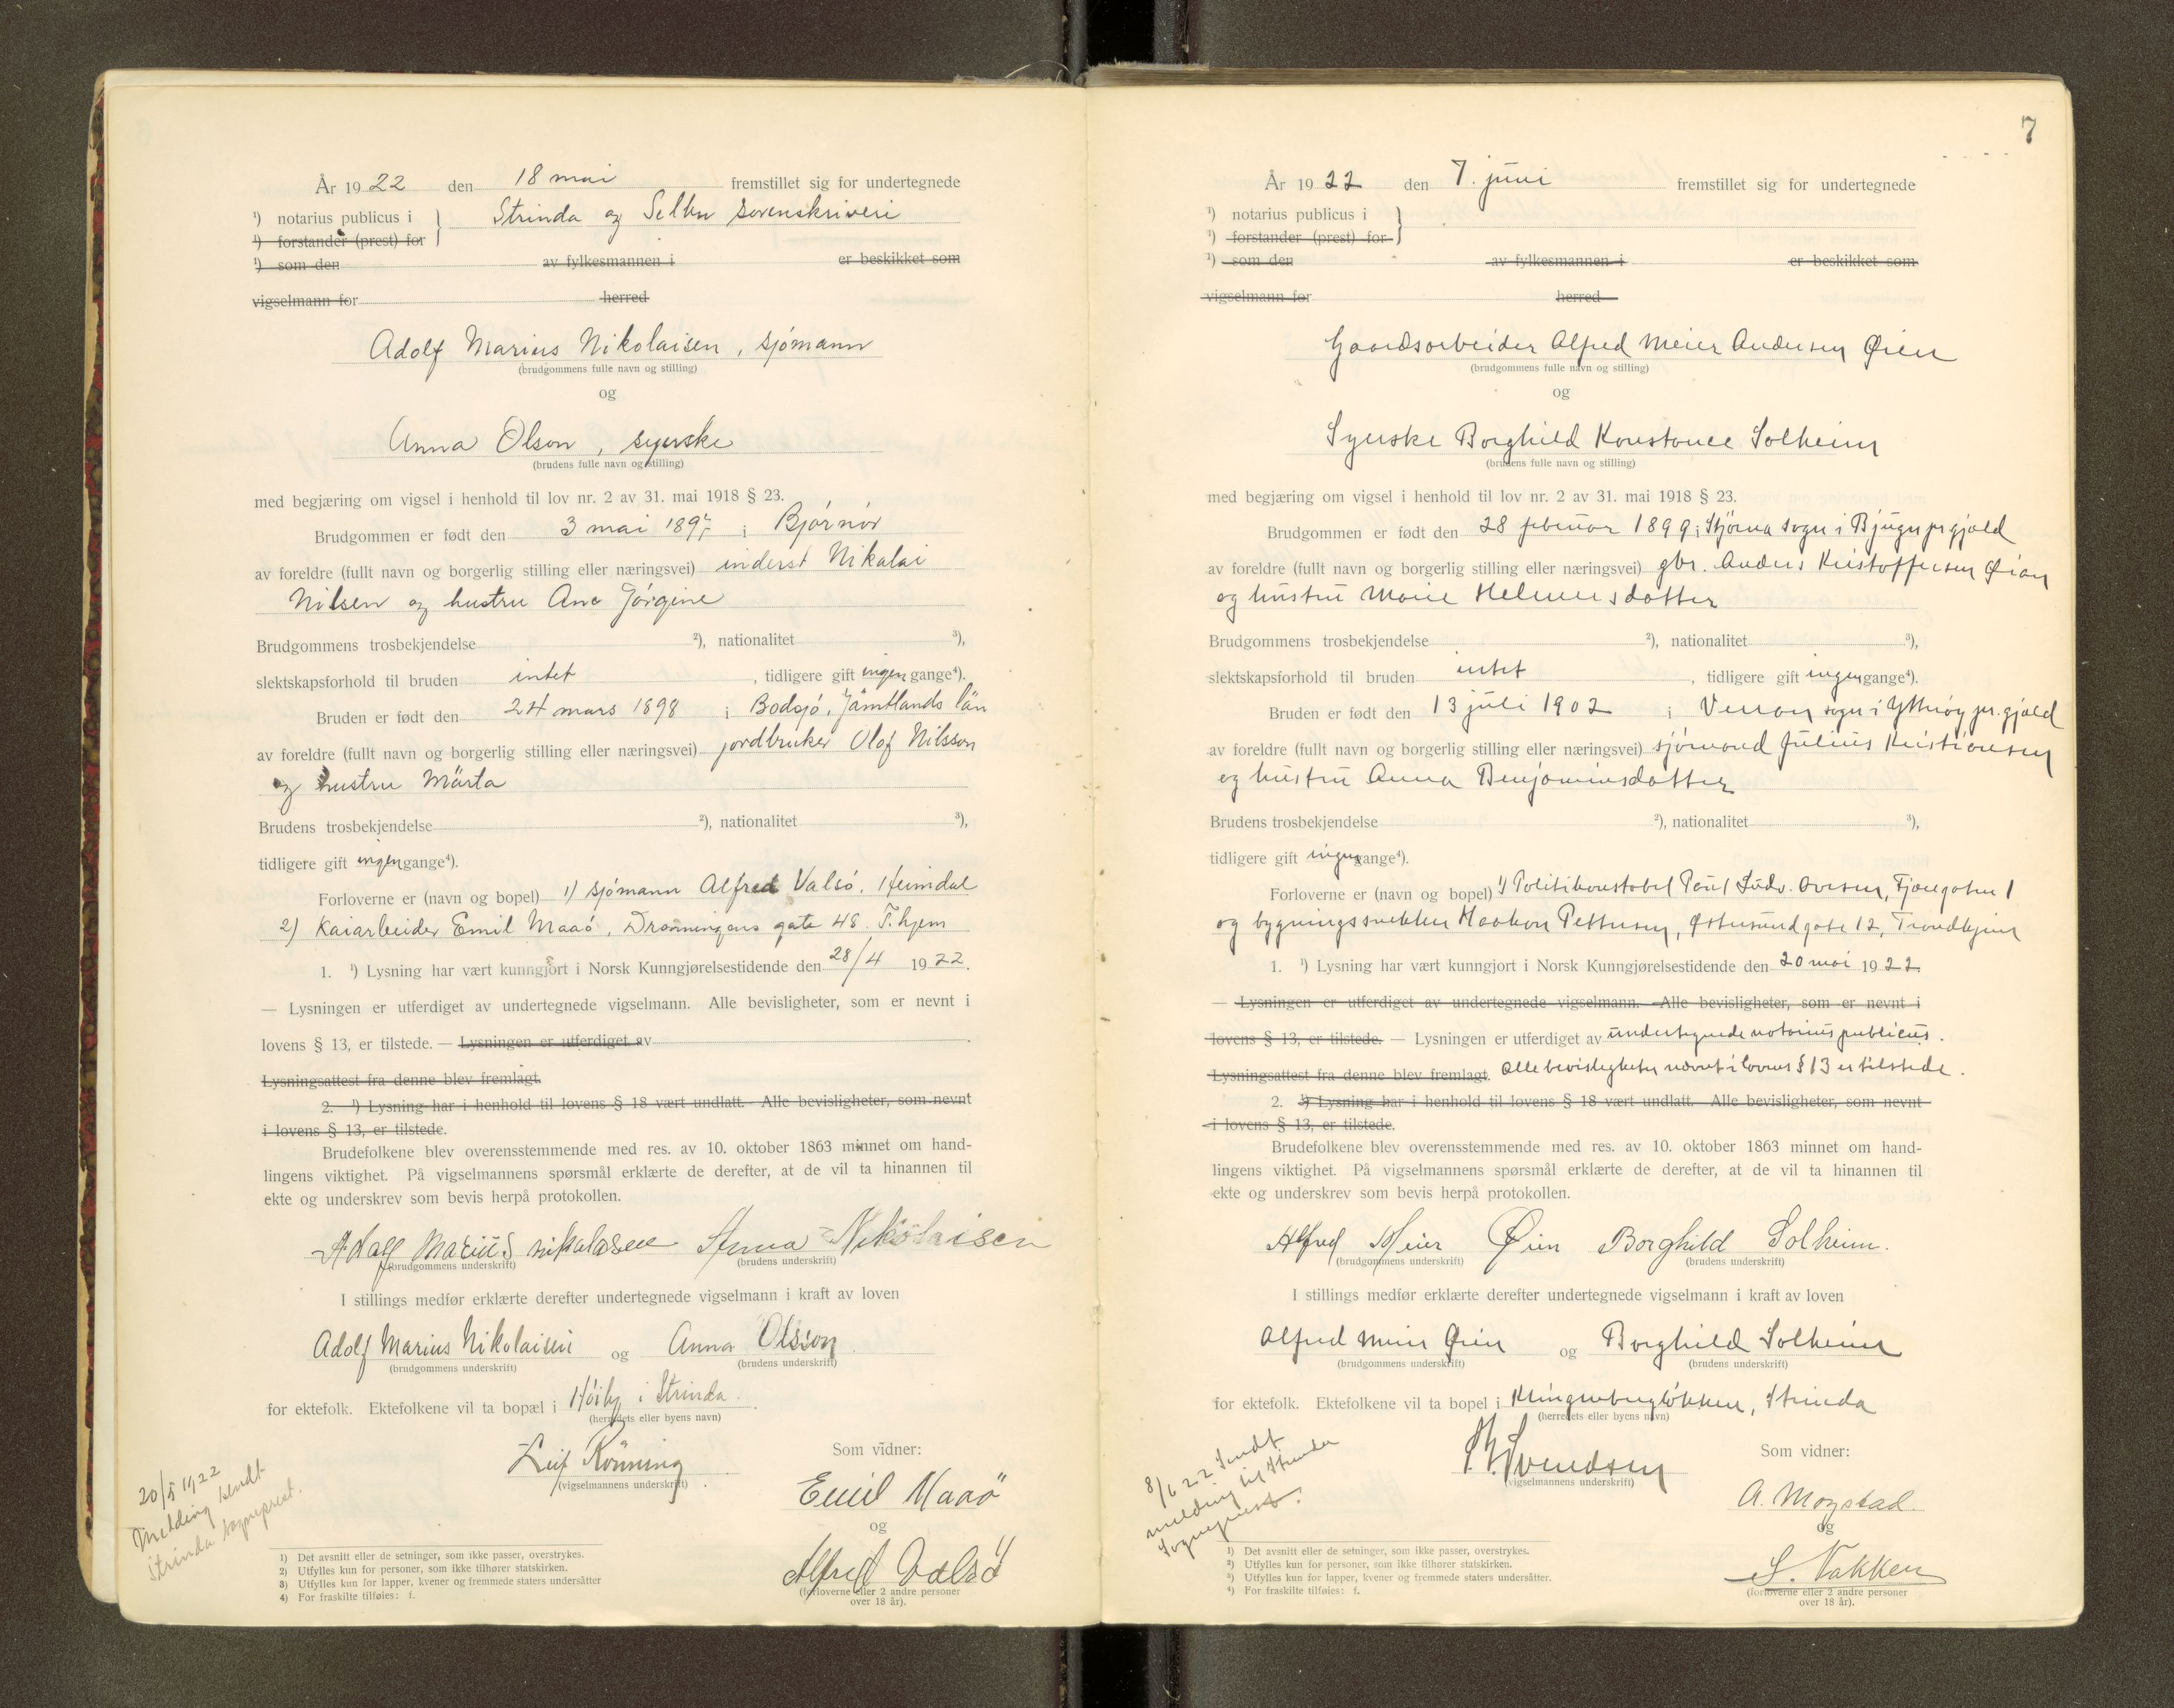 År 1922 den 18 mai fremstillet sig for undertegnede
¹) notarius publicus i } Strinda og Selbu sorenskriveri
¹) forstander (prest) for
¹) som den av fylkesmannen i er beskikket som
vigselmann for herred
Adolf Marius Nikolaisen, sjómann
(brudgommens fulle navn og stilling)
og
Anna Olson, syerske
(brudens fulle navn og stilling)
med begjæring om vigsel i henhold til lov nr. 2 av 31. mai 1918 § 23.
Brudgommen er født den 3 mai i Bjórnór
av foreldre (fullt navn og borgerlig stilling eller næringsvei) inderst Nikolai
Nilsen og hustru Ane Jórgine
Brudgommens trosbekjendelse ²), nationalitet ³),
slektskapsforhold til bruden intet , tidligere gift ingen gange⁴).
Bruden er født den 24 mars 1898 i Bodsjö, Jämtlands län
av foreldre (fullt navn og borgerlig stilling eller næringsvei) jordbruker Olof Nilsson
og hustru Märta
Brudens trosbekjendelse ²), nationalitet ³),
tidligere gift ingen gange⁴).
Forloverne er (navn og bopel) 1) sjómann Alfred Valsó, Heimdal
2) Kaiarbeider Emil Maaó, Dronningens gate 48 T.hjem
1. ¹) Lysning har vært kunngjort i Norsk Kunngjørelsestidende den 28/4 1922.
— Lysningen er utferdiget av undertegnede vigselmann. Alle bevisligheter, som er nevnt i
lovens § 13, er tilstede. — Lysningen er utferdiget av
Lysningsattest fra denne blev fremlagt.
2. ¹) Lysning har i henhold til lovens § 18 vært undlatt. Alle bevisligheter, som nevnt
i lovens § 13, er tilstede.
Brudefolkene blev overensstemmende med res. av 10. oktober 1863 minnet om hand-
lingens viktighet. På vigselmannens spørsmål erklærte de derefter, at de vil ta hinannen til
ekte og underskrev som bevis herpå protokollen.
Adolf Marius nikolasen Anna Nikolaisen
(brudgommens underskrift) (brudens underskrift)
I stillings medfør erklærte derefter undertegnede vigselmann i kraft av loven
Adolf Marius Nikolaisen og Anna Olsson
(brudgommens underskrift) (brudens underskrift)
for ektefolk. Ektefolkene vil ta bopæl i Hóiby i Strinda.
(herredets eller byens navn)
Leif Rönning
(vigselmannens underskrift)
Som vidner:
Emil Maaö
og
Alfred Valsö
(forloverne eller 2 andre personer
over 18 år).
20/5 1922
Melding sendt
Strinda sogneprest.
1) Det avsnitt eller de setninger, som ikke passer, overstrykes.
2) Utfylles kun for personer, som ikke tilhører statskirken.
3) Utfylles kun for lapper, kvener og fremmede staters undersåtter
4) For fraskilte tilføies: f.
7
År 1922 den 7. juni fremstillet sig for undertegnede
¹) notarius publicus i }
¹) forstander (prest) for
¹) som den av fylkesmannen i er beskikket som
vigselmann for herred
Gaardsarbeider Alfred Meier Andersen Øien
(brudgommens fulle navn og stilling)
og
Syerske Borghild Konstance Solheim
(brudens fulle navn og stilling)
med begjæring om vigsel i henhold til lov nr. 2 av 31. mai 1918 § 23.
Brudgommen er født den 28 februar 1899 i Stjørna sogn i Bjugn prgjeld
av foreldre (fullt navn og borgerlig stilling eller næringsvei) gbr. Anders Kristoffersen Øian
og hustru Marie Helmersdatter
Brudgommens trosbekjendelse ²), nationalitet ³),
slektskapsforhold til bruden intet , tidligere gift ingen gange⁴).
Bruden er født den 13 juli 1902 i Verran sogn i Ytterøy pr.gjeld
av foreldre (fullt navn og borgerlig stilling eller næringsvei) sjømand Julius Kristiansen
og hustru Anna Benjaminsdatter
Brudens trosbekjendelse ²), nationalitet ³),
tidligere gift ingen gange⁴).
Forloverne er (navn og bopel) 1) Politikonstabel Paul Ludv. Ovesen, 1
og bygningssnekker Haakon Pettersen, Østersundgate 12, Trondhjem
1. ¹) Lysning har vært kunngjort i Norsk Kunngjørelsestidende den 20 mai 1922
— Lysningen er utferdiget av undertegnede vigselmann. Alle bevisligheter, som er nevnt i
lovens § 13, er tilstede. — Lysningen er utferdiget av undertegnede notarius publicus.
Lysningsattest fra denne blev fremlagt. Alle bevisligheter nævnt i lovens § 13 er tilstede.
2. ¹) Lysning har i henhold til lovens § 18 vært undlatt. Alle bevisligheter, som nevnt
i lovens § 13, er tilstede.
Brudefolkene blev overensstemmende med res. av 10. oktober 1863 minnet om hand-
lingens viktighet. På vigselmannens spørsmål erklærte de derefter, at de vil ta hinannen til
ekte og underskrev som bevis herpå protokollen.
Alfred Meier Øien Borghild Solheim.
(brudgommens underskrift) (brudens underskrift)
I stillings medfør erklærte derefter undertegnede vigselmann i kraft av loven
Alfred Meier Øien og Borghild Solheim
(brudgommens underskrift) (brudens underskrift)
for ektefolk. Ektefolkene vil ta bopel i Klingenbergløkken, Strinda
(herredets eller byens navn)
Svendsen
(vigselmannens underskrift)
Som vidner:
A. Mogstad.
og
S. Nakken
(forloverne eller 2 andre personer
over 18 år).
8/6 22 Sendt
melding til Strinda
sogneprest.
¹) Det avsnitt eller de setninger, som ikke passer, overstrykes.
²) Utfylles kun for personer, som ikke tilhører statskirken.
³) Utfylles kun for lapper, kvener og fremmede staters undersåtter.
⁴) For fraskilte tilføies: f.